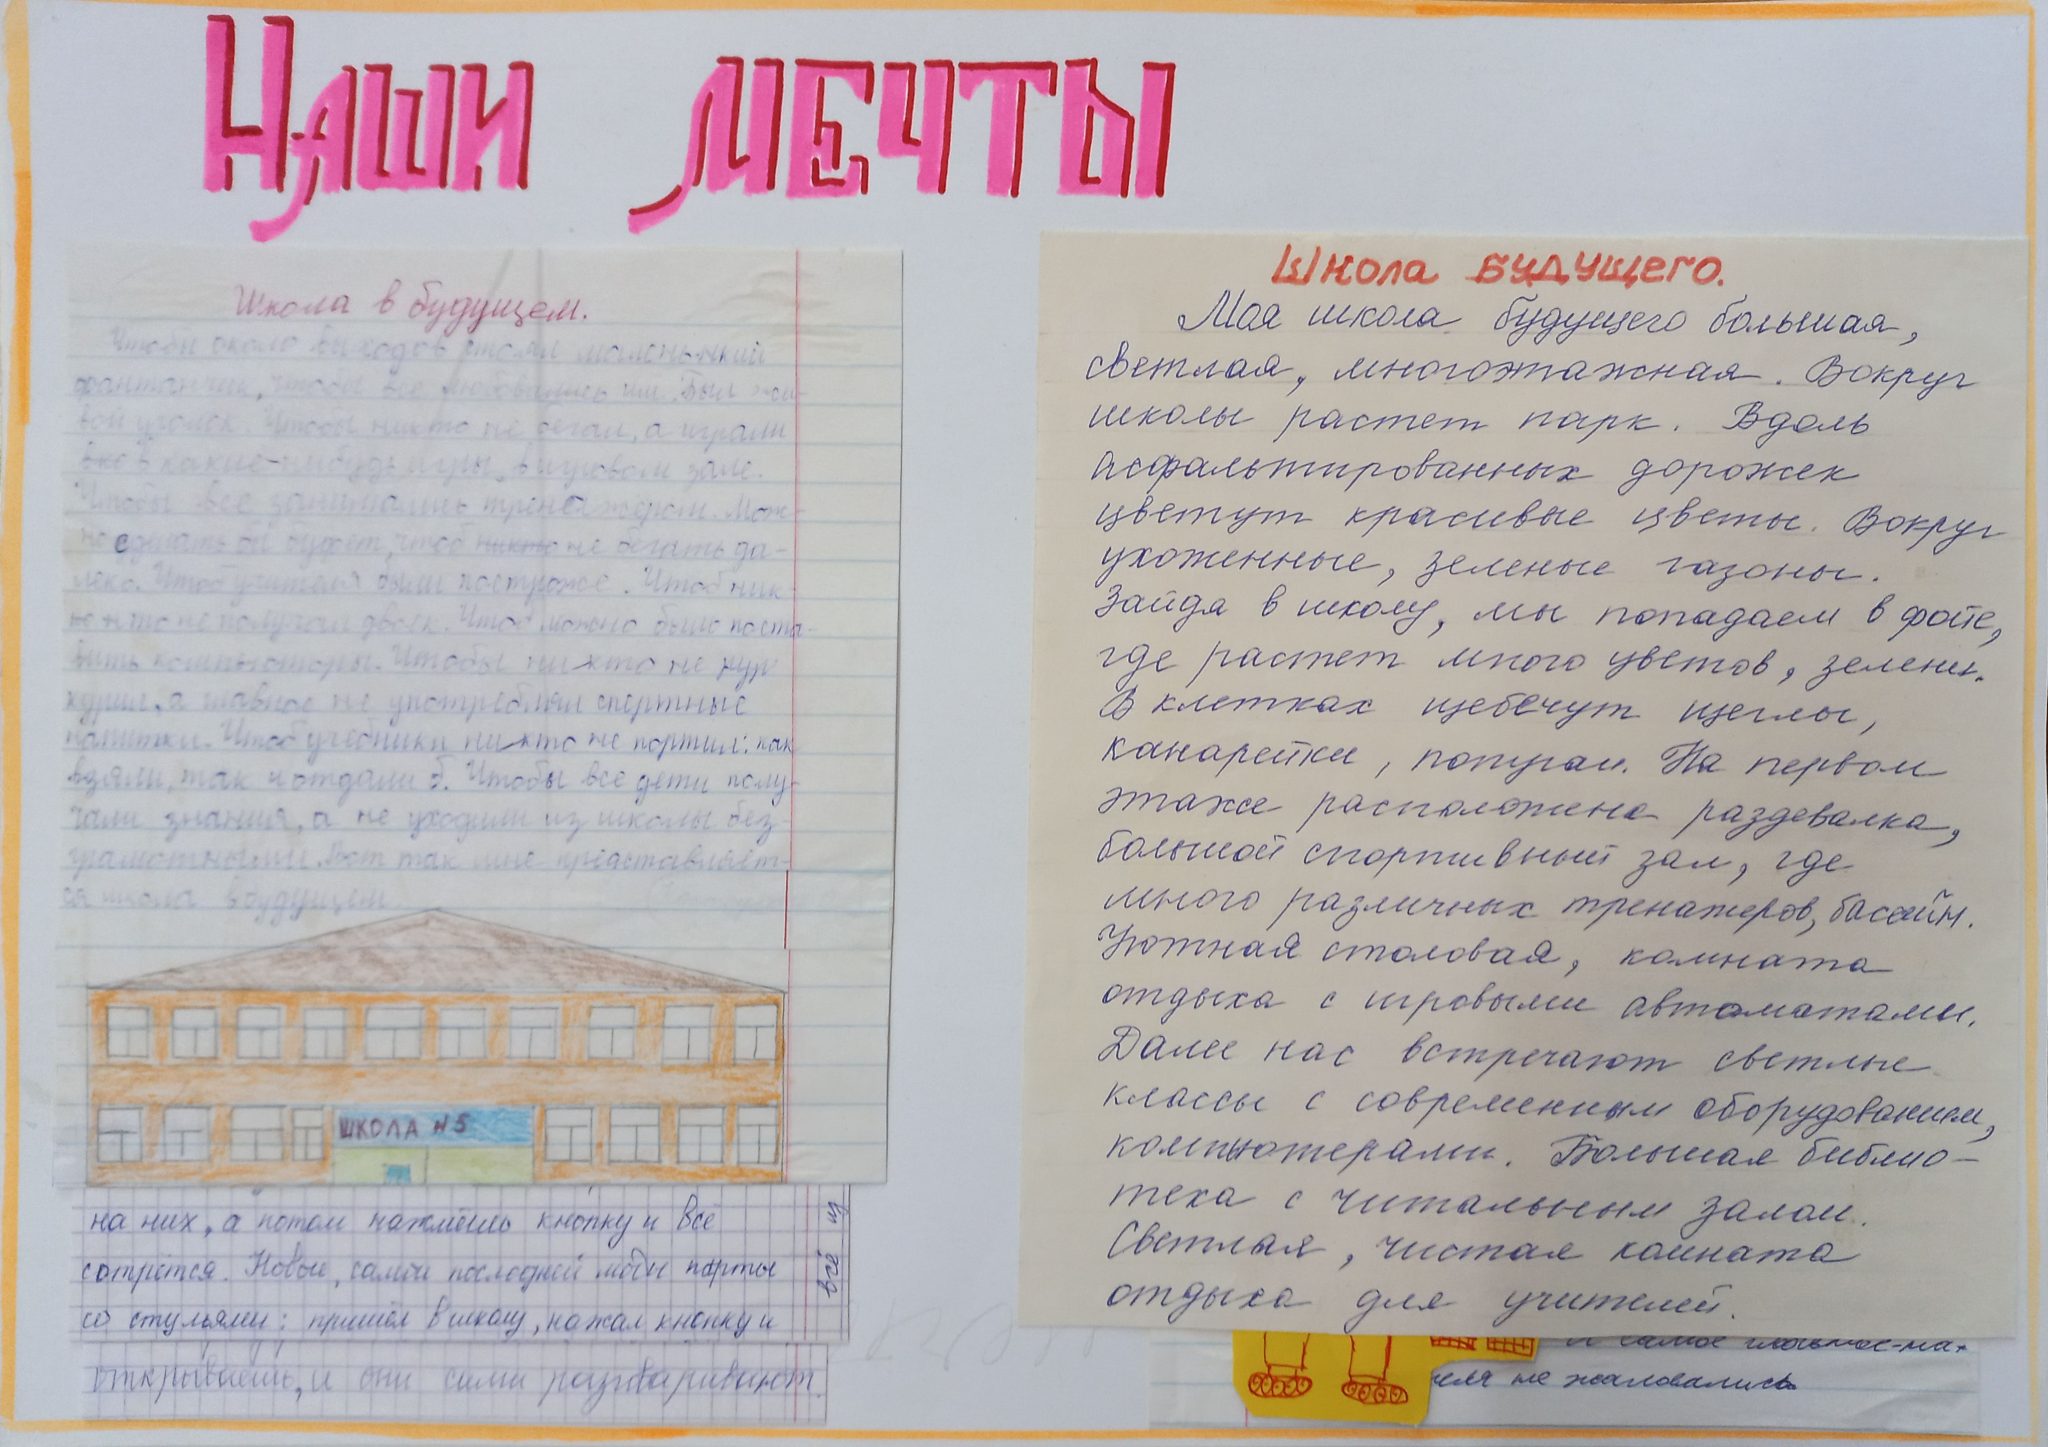 Наши мечты
Школа в будущем.
Чтобы около выходов стоял маленький
фантанчик, чтобы все любовались им. Был жи-
вой уголок. Чтобы никто не бегал, а играли
все в какие-нибудь игры, в игровом зале.
Чтобы все занимались тренажером. Мож-
но сделать бы буфет, чтоб никто не бегать да-
леко. Чтоб учителя были построже. Чтоб ник
то не получал двоек. Чтоб можно было поста-
вить компьютеры. Чтобы никто не
курил, а главное не употреблял спиртные
напитки. Чтоб учебники никто не портил: как
взяли, так и отдали б. Чтобы все дети полу-
чали знания, а не уходили из школы без-
грамотными. Вот так мне представляет-
ся школа в будущем
ШКОЛА №5
на них, а потом нажмёшь кнопку и всё
сотрётся. Новые, самой последней моды парты
со стульями; пришёл в школу, нажал кнопку и
всё из
открываешь, и они сами разговаривают.
Школа будущего.
Моя школа будущего большая,
светлая, многоэтажная. Вокруг
школы растет парк. Вдоль
асфальтированных дорожек
цветут красивые цветы. Вокруг
ухоженные, зеленые газоны.
Зайдя в школу, мы попадаем в фойе,
где растет много цветов, зелени.
В клетках щебечут щеглы,
канарейки, попугаи. На первом
этаже расположена раздевалка,
большой спортивный зал, где
много различных тренажеров, бассейн.
Уютная столовая, комната
отдыха с игровыми автоматами.
Далее нас встречают светлые
классы с современным оборудованием,
компьютерами. Большая библио-
тека с читальным залом.
Светлая, чистая комната
отдыха для учителей.
и самое главное-на.
не жаловались